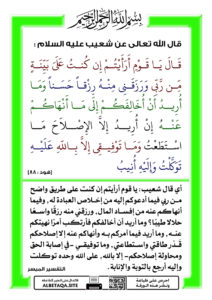 بسم الله الرحمن الرحيم
قال الله تعالى عن شعيب عليه السلام :
قَالَ يَا قَوْمِ أَرَأَيْتُمْ إِن كُنتُ عَلَىٰ بَيِّنَةٍ
مِّن رَّبِّي وَرَزَقَنِي مِنْهُ رِزْقًا حَسَنًا وَمَا
أُرِيدُ أَنْ أُخَالِفَكُمْ إِلَىٰ مَا أَنْهَاكُمْ
عَنْهُ إِنْ أُرِيدُ إِلَّا الْإِصْلَاحَ مَا
اسْتَطَعْتُ وَمَا تَوْفِيقِي إِلَّا بِاللَّهِ عَلَيْهِ
تَوَكَّلْتُ وَإِلَيْهِ أُنِيبُ
[هود : ٨٨]
أي قال شعيب: يا قوم أرأيتم إن كنت على طريق واضح
من ربي فيما أدعوكم إليه من إخلاص العبادة له، وفيما
أنهاكم عنه من إفساد المال، ورزقني منه رزقًا واسعًا
حلالا طيبًا؟ وما أريد أن أخالفكم فأرتكب أمرًا نهيتكم
عنه، وما أريد فيما آمركم به وأنهاكم عنه إلا إصلاحكم
قَدْر طاقتي واستطاعتي، وما توفيقي - في إصابة الحق
ومحاولة إصلاحكم - إلا بالله، على الله وحده توكلت
وإليه أرجع بالتوبة والإنابة.
التفسير الميسر
ALBETAQA.SITE